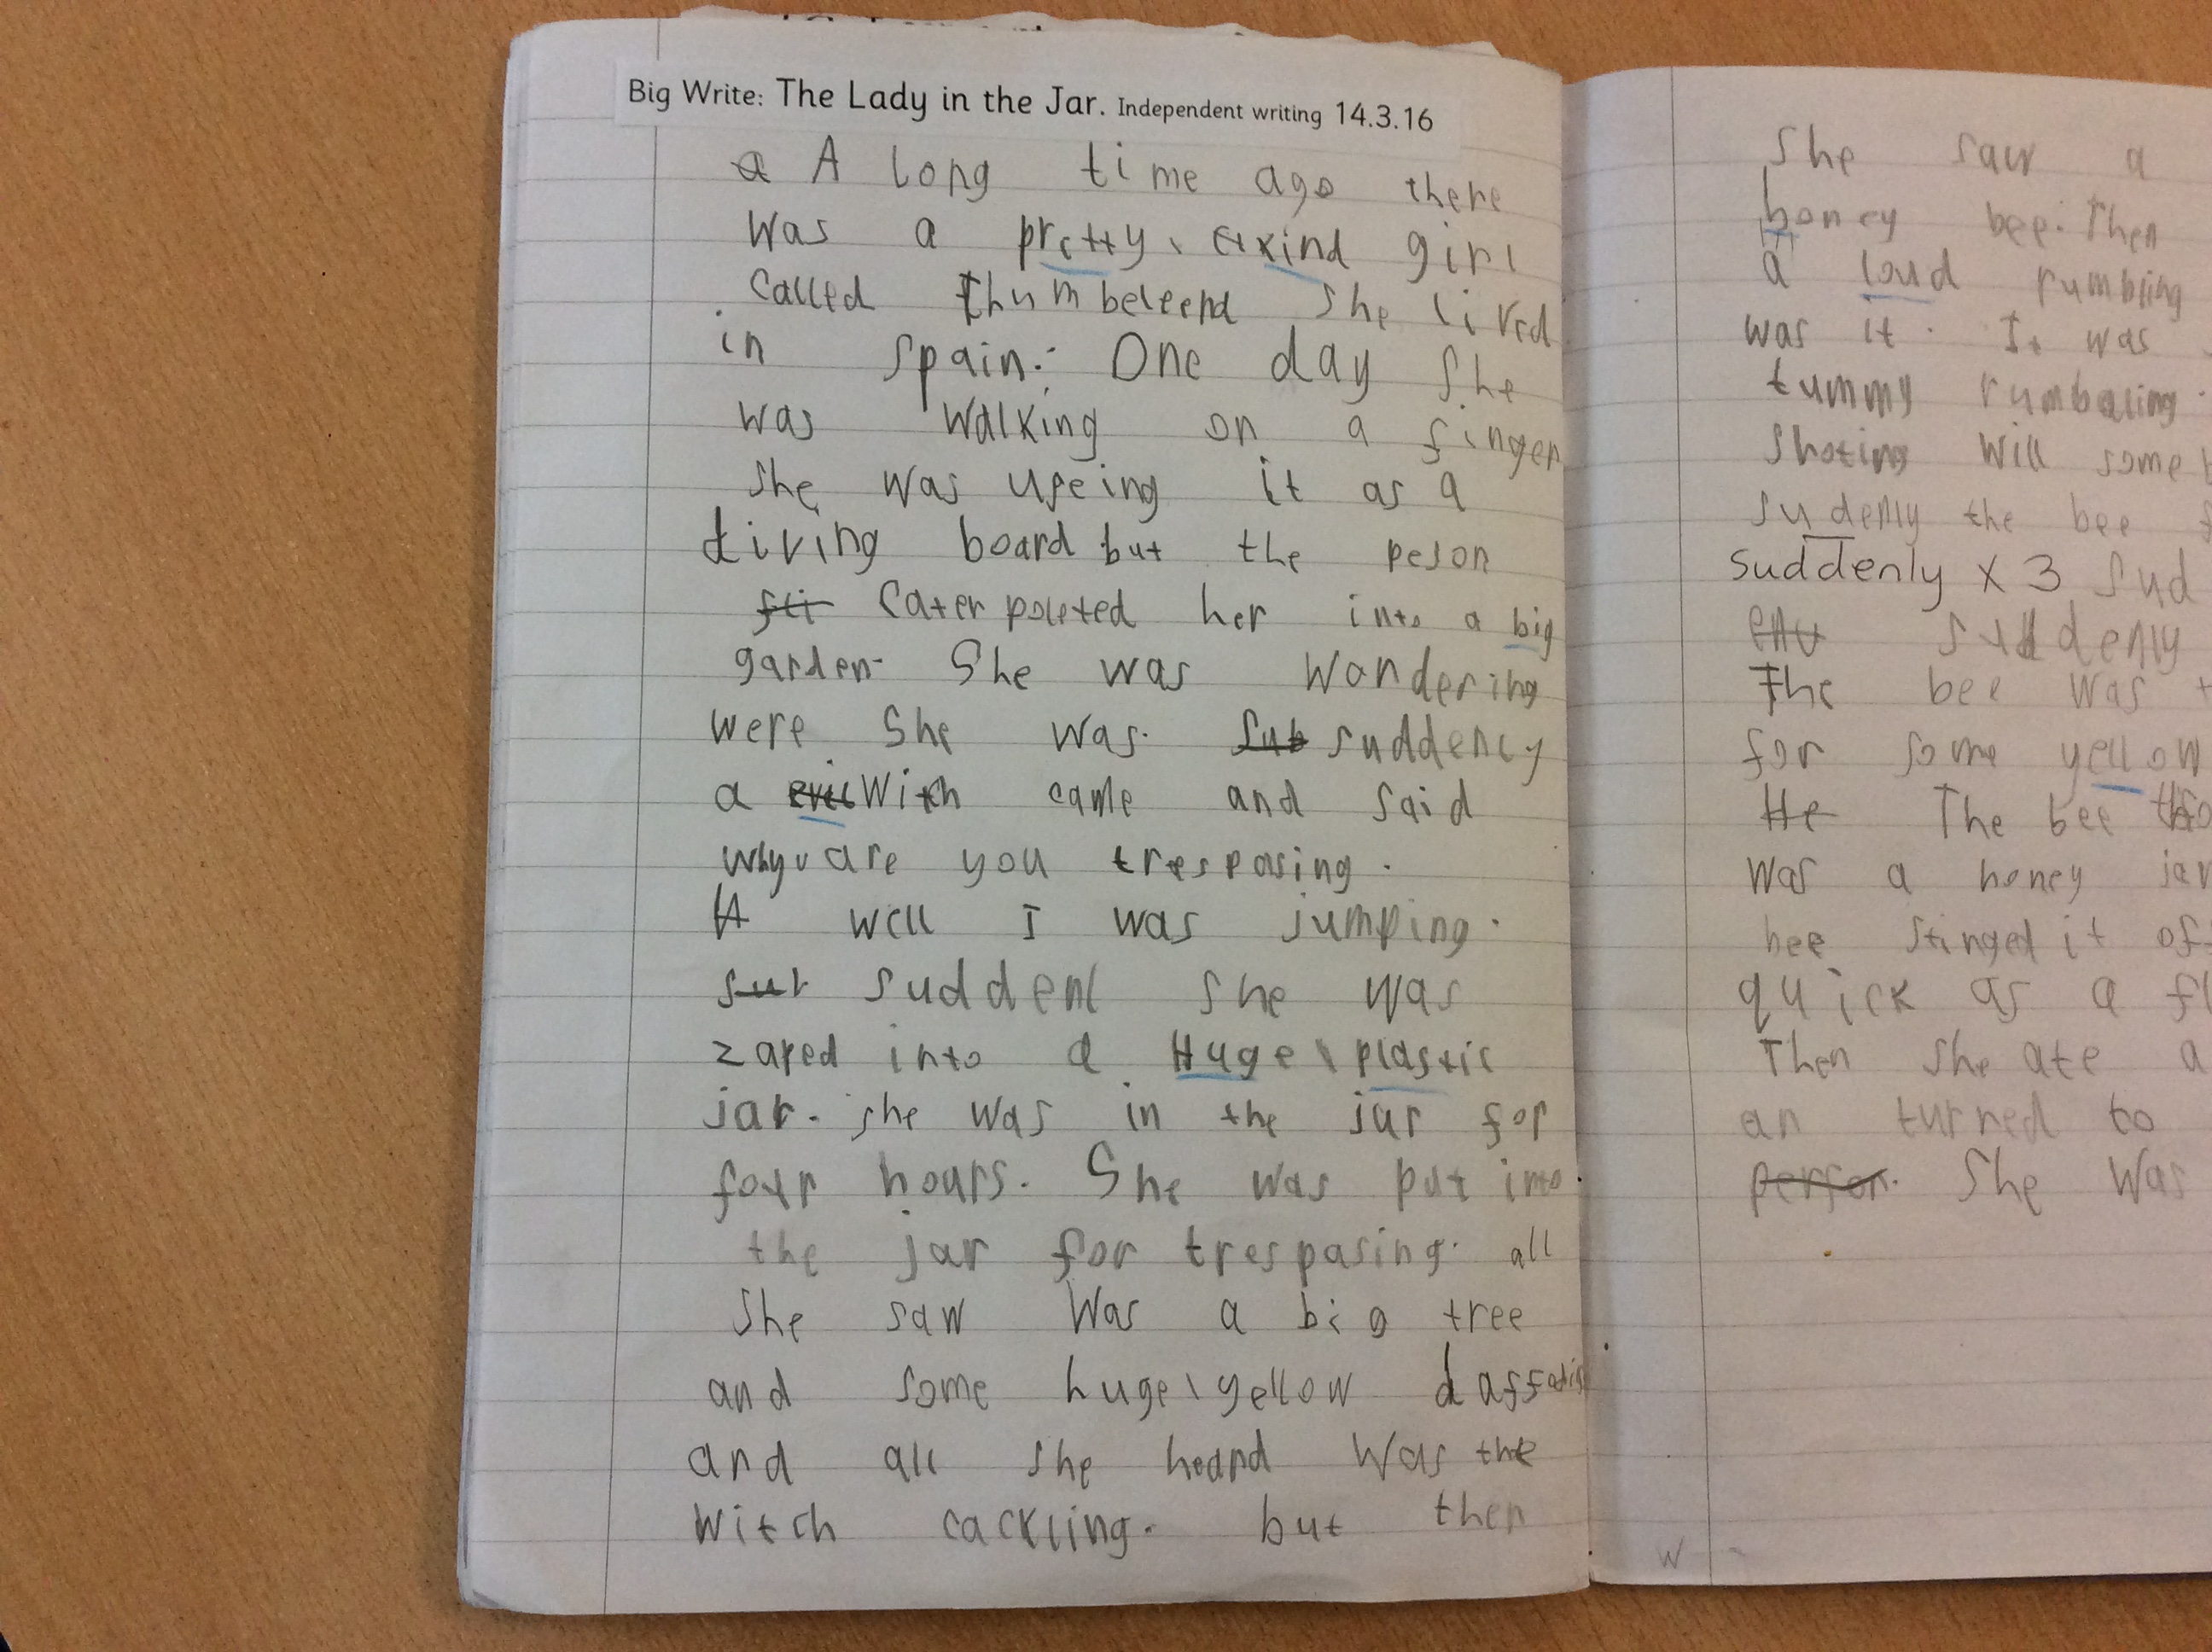 Big Write: The Lady in the Jar. Independent writing 14.3.16
a A long time ago there
was a pretty, kind girl
called Thumbeleena she lived
in spain. One day she
was walking on a finger
she was useing it as a
diving board but the peson
fli Caterpoleted her into a big
garden. She was wondering
were she was. Sub suddenly
a evil witch came and said
why are you trespasing.
A well I was jumping.
sub suddenl she was
zaped into a Huge, plastic
jar. she was in the jar for
four hours. She was put into
the jar for trespasing. all
she saw was a big tree
and some huge, yellow
and all she heard was the
witch cackling. but then
She saw a
honey bee. Then
a loud rumbling
was it. It was
tummy rumbaling.
Shoting will some
sudenly the bee
suddenly x 3 Sud
suddenly
The bee was
for some yellow
He The bee
was a honey jar
bee stinged it of
quick as a fl
Then she ate a
an turned to
person. She was